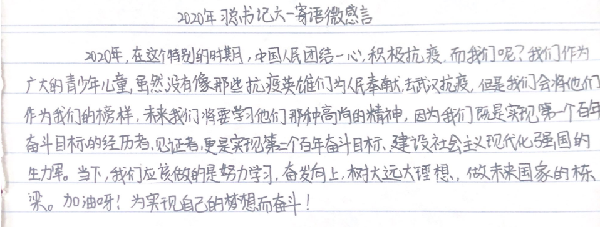 2020年习总书记六一寄语微感言
2020年,在这个特别的时期,中国人民团结一心,积极抗疫,而我们呢?我们作为
广大的青少年儿童,虽然没有像那些抗疫英雄们为人民奉献,去武汉抗疫,但是我们会将他们
作为我们的榜样,未来我们将要学习他们那种高尚的精神,因为我们既是实现第一个百年
奋斗目标的经历者,见证者,更是实现第二个百年奋斗目标、建设社会主义现代化强国的
生力军。当下,我们应该做的是努力学习,奋发向上,树大远大理想,做未来国家的栋
梁。加油呀!为实现自己的梦想而奋斗!